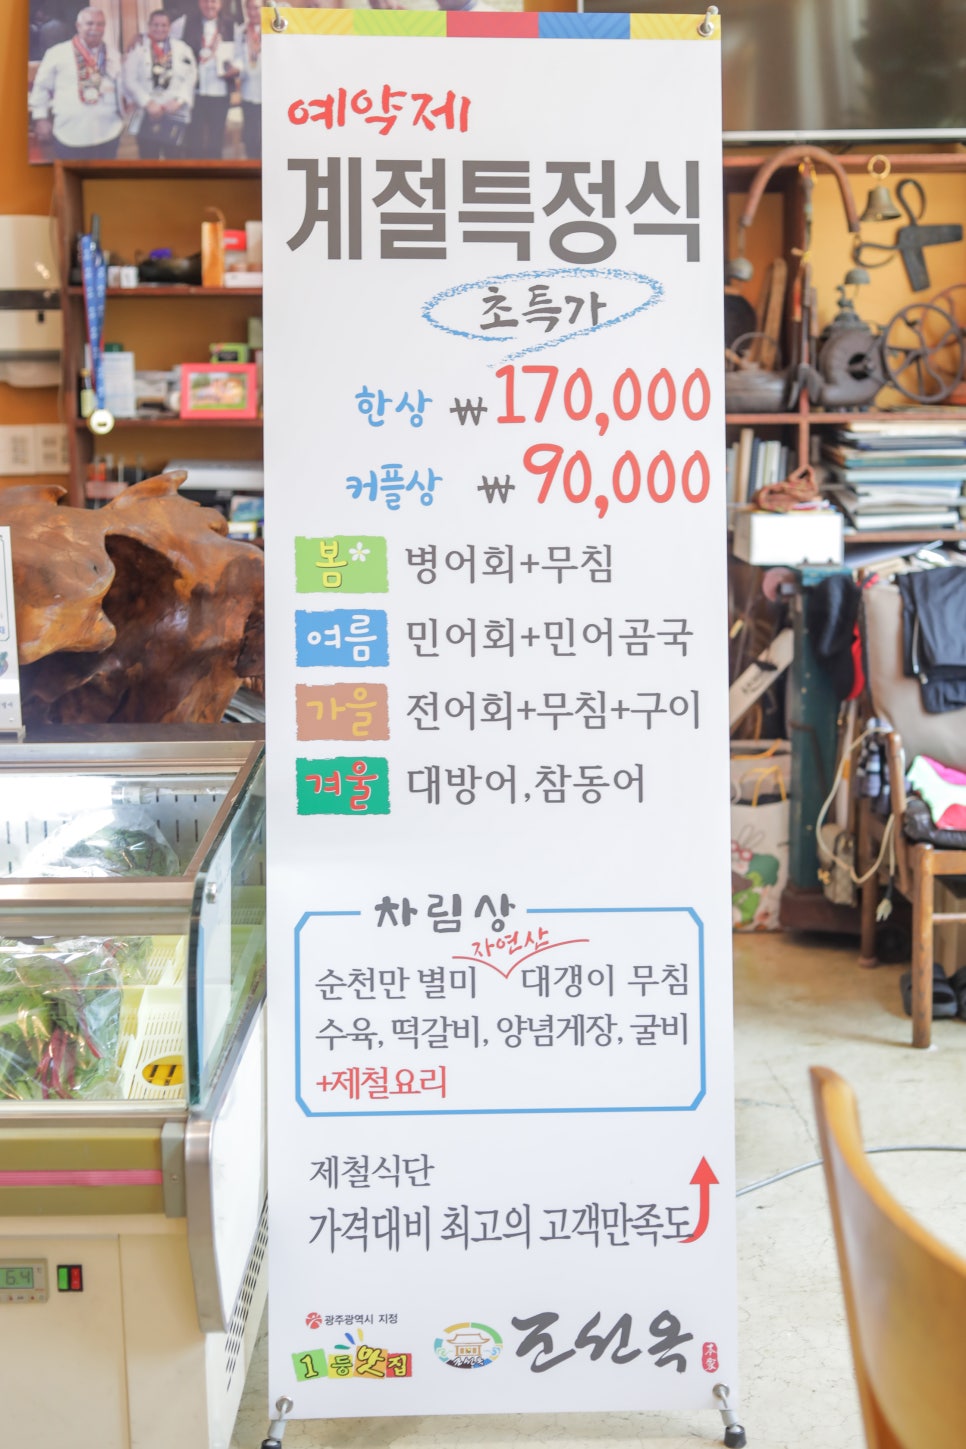 예약제
계절특정식
초특가
한상 ₩170,000
커플상 ₩90,000
봄 병어회+무침
여름 민어회+민어곰국
가을 전어회+무침+구이
겨울 대방어,참동어
차림상
자연산
순천만 별미 대갱이 무침
수육, 떡갈비, 양념게장, 굴비
+제철요리
제철식단
가격대비 최고의 고객만족도
광주광역시 지정
1등맛집
조선옥
本家
6.4